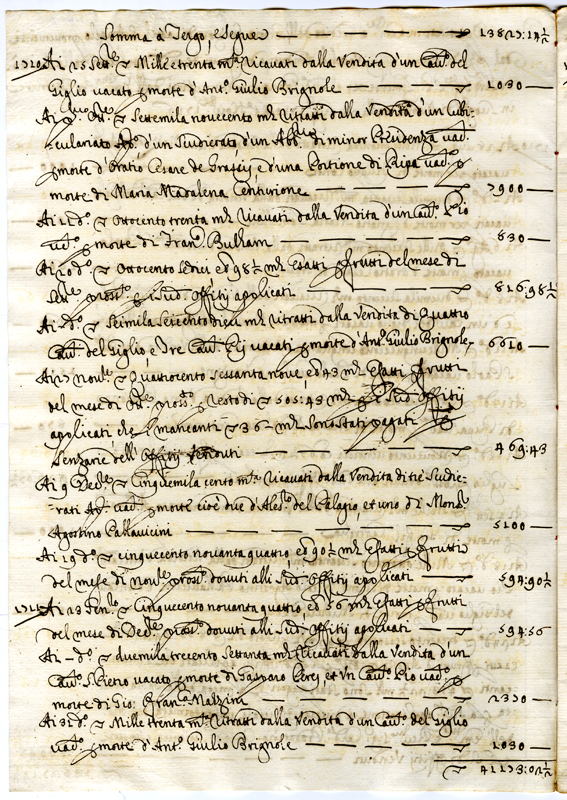 Somma à Tergo, e Segue — 13827:14½
1720 Ai 25 Sett.re Mille e trenta m.ta ricavati dalla Vendita d'un Cav.to del
Giglio vacato p morte d'Ant.o Giulio Brignole — 1030 —
Settemila novecento m.ta ritratti dalla Vendita d'un Cubi-
culariato Ap. d'un Scudierato d'un Abb. di minor Presidenza vac.
p morte d'Oratio Cesare de e d'una Portione di Ripa vac. p
morte di Maria Madalena Centurione — 7900 —
Ai d.o Ottocento trenta m.ta ricavati dalla Vendita d'un Cav. Pio
vac. p morte di Fran. — 830 —
Ai 20 d.o Ottocento sedici e 98½ m.ta Esatti p frutti del mese di
Sett.re pross. p i Sud. Offitij applicati — 816:98½
Ai d.o Seimila Seicento dieci m.ta ritratti dalla Vendita di Quattro
Cav. del Giglio e Tre Cav. Pij vacati p morte d'Ant. Giulio Brignole — 6610 —
Ai Nov.re Quattrocento sessanta nove, e 43 m.ta Esatti p frutti
del mese di Ott.re pross. resto di 505:43 m.ta p i Sud. Offitij
applicati che i mancanti 36 – m.ta Sono Stati pagati p
Senzarie dell' Offitij Venduti — 469:43
Ai 9 Dec.re Cinquemila cento m.ta ricavati dalla Vendita di tre Scudie-
rati Ap. vac. p morte cioè due d'Ales. del Palagio, et uno di Mons.
Agostino Pallavicini — 5100 —
Ai 19 d.o cinquecento novanta quattro, e 90½ m.ta Esatti p frutti
del mese di Nov.re pross. dovuti alli Sud. Offitij applicati — 594:90½
1721 Ai 23 Gen.ro Cinquecento novanta quattro, e 56 m.ta Esatti p frutti
del mese di Dec.re pross. dovuti alli Sud. Offitij applicati — 594:56
Ai – d.o duemila trecento Settanta m.ta ricavati dalla Vendita d'un
Cav. S. Pietro vacato p morte di Gasparo et Un Cav. Pio vac. p
morte di Gio: Fran.co — 2370 —
Ai 31 d.o Mille trenta m.ta ritratti dalla Vendita d'un Cav. del Giglio
vac. p morte d'Ant. Giulio Brignole — 1030 —
41173:02½